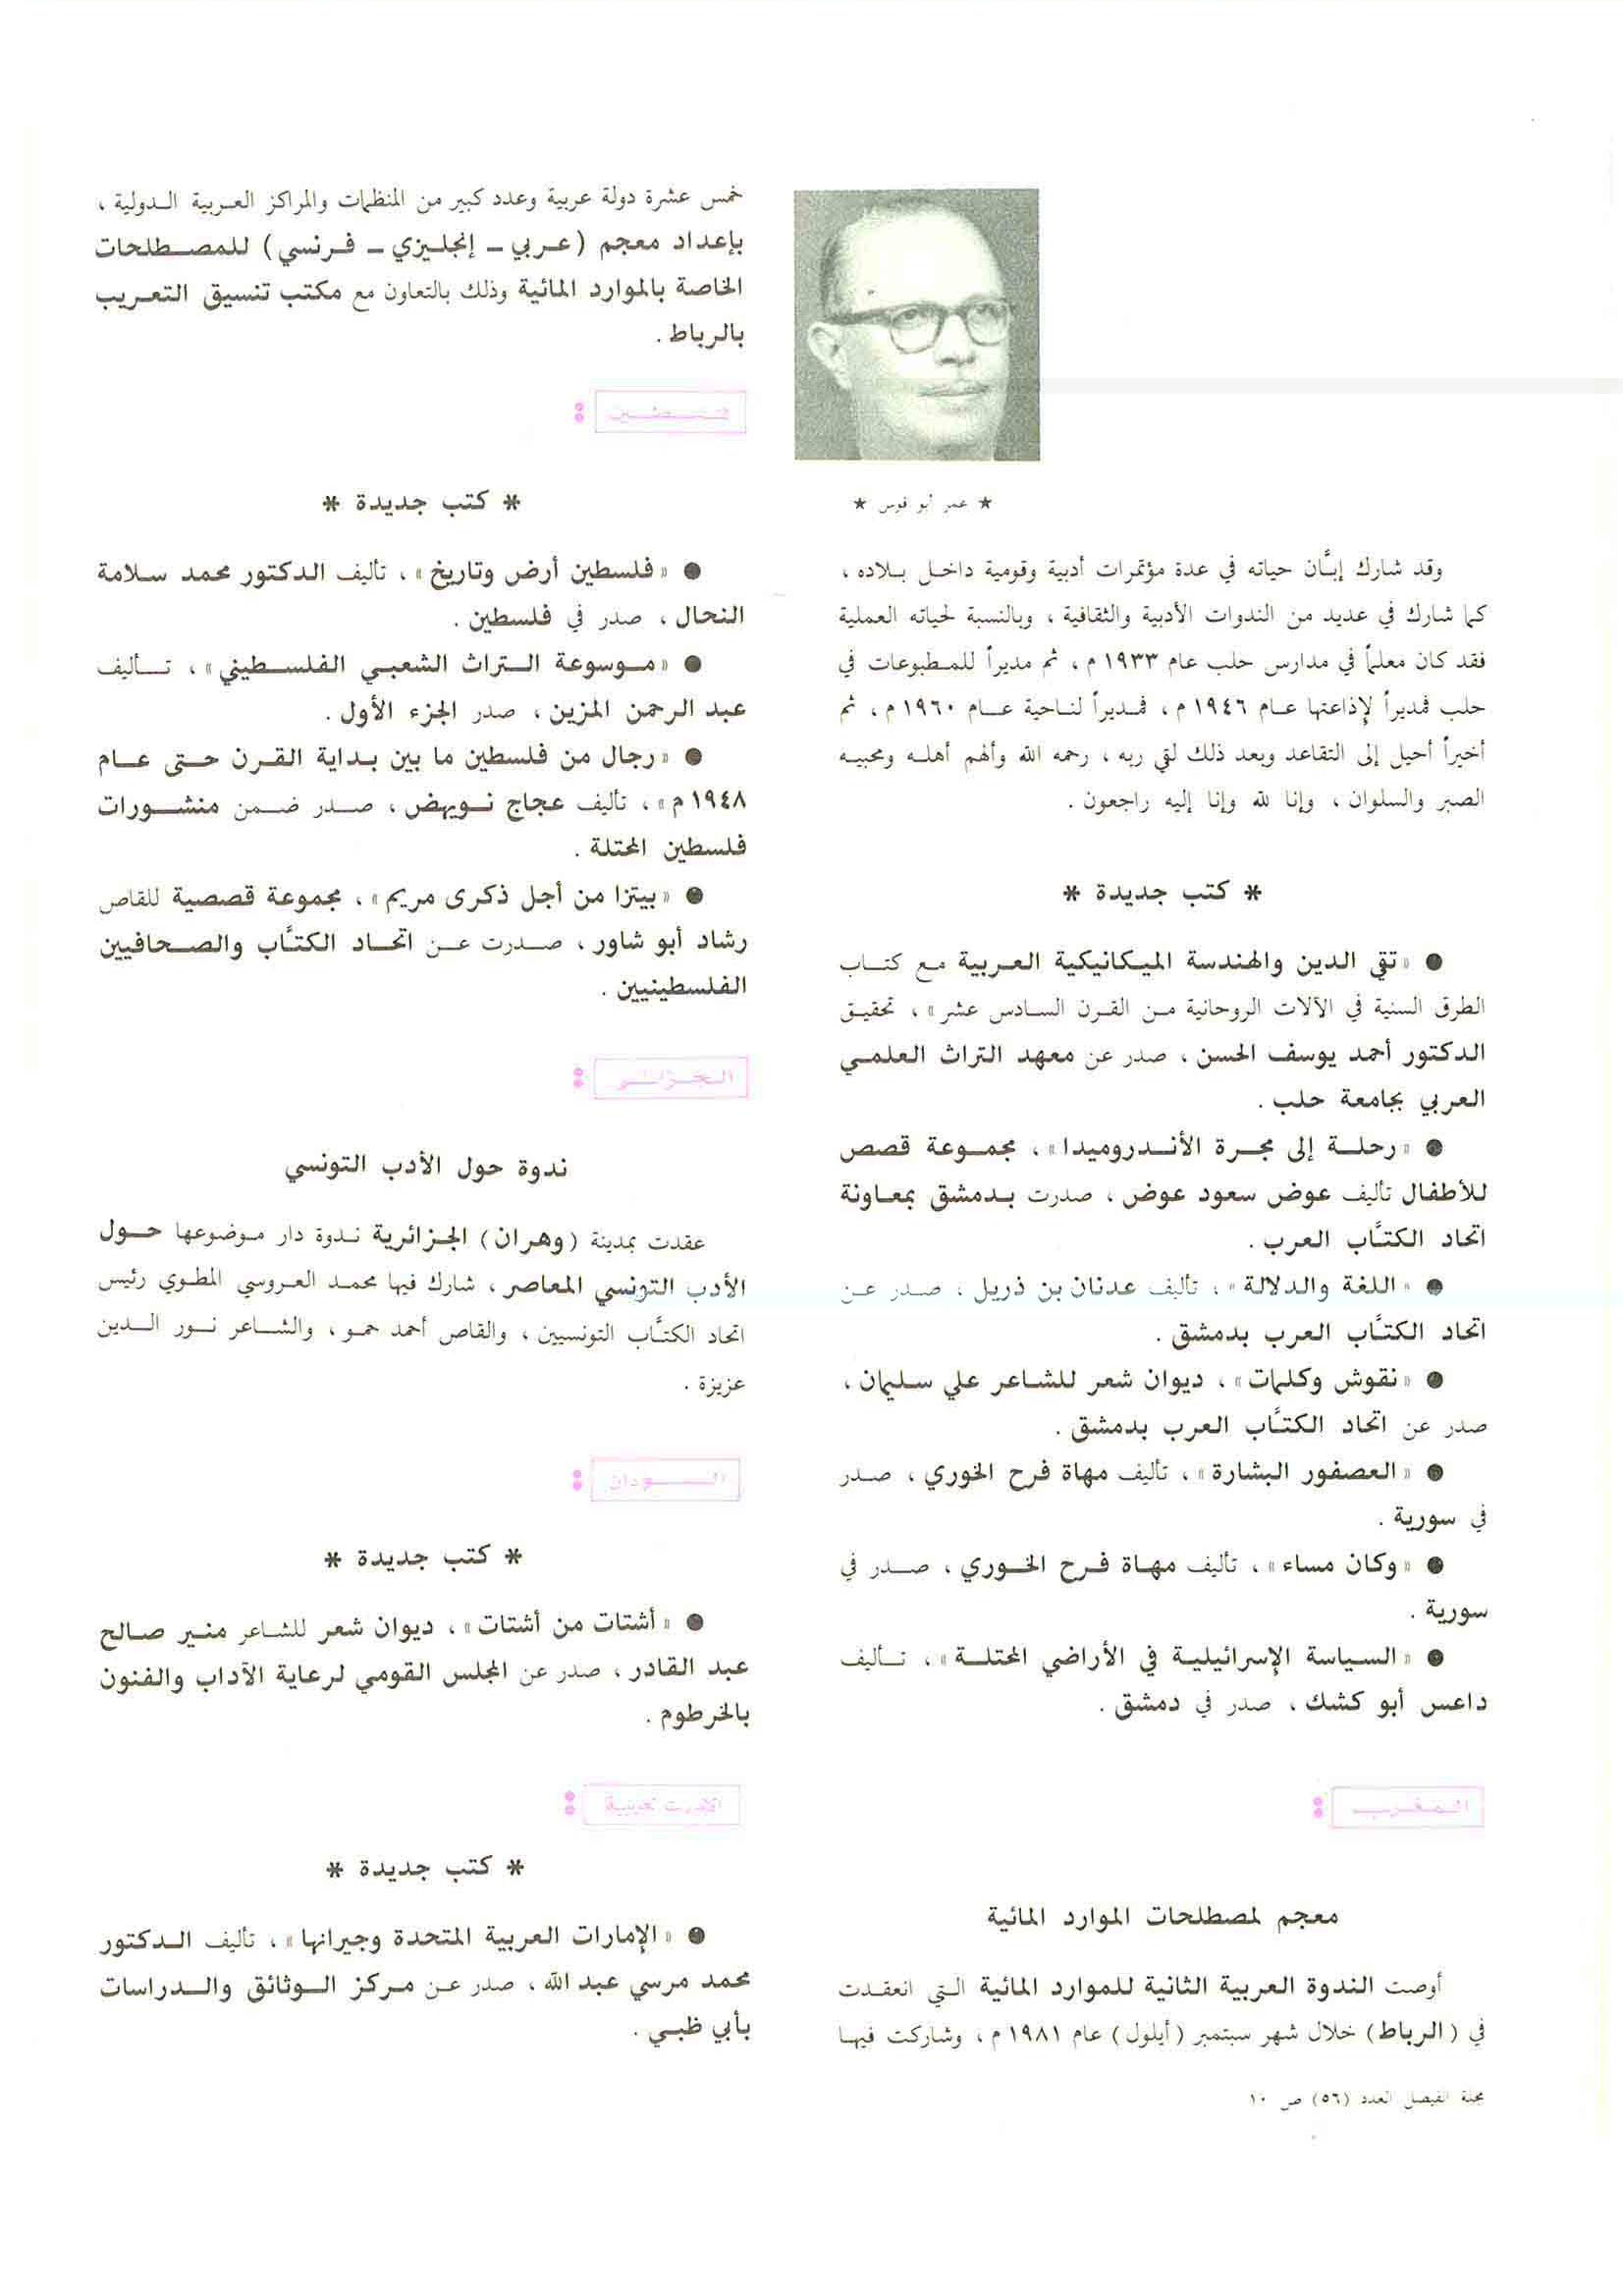 ★ عمر أبو قوس ★
وقد شارك إبَّان حياته في عدة مؤتمرات أدبية وقومية داخل بلاده ،
كما شارك في عديد من الندوات الأدبية والثقافية ، وبالنسبة لحياته العملية
فقد كان معلماً في مدارس حلب عام ١٩٣٣ م ، ثم مديراً للمطبوعات في
حلب فمديراً لإذاعتها عام ١٩٤٦ م ، فمديراً لناحية عام ١٩٦٠ م ، ثم
أخيراً أحيل إلى التقاعد وبعد ذلك لقي ربه ، رحمه الله وألهم أهله ومحبيه
الصبر والسلوان ، وإنا لله وإنا إليه راجعون .
* كتب جديدة *
● « تقي الدين والهندسة الميكانيكية العربية مع كتاب
الطرق السنية في الآلات الروحانية من القرن السادس عشر » ، تحقيق
الدكتور أحمد يوسف الحسن ، صدر عن معهد التراث العلمي
العربي بجامعة حلب .
● « رحلة إلى مجرة الأندروميدا » ، مجموعة قصص
للأطفال تأليف عوض سعود عوض ، صدرت بدمشق بمعاونة
اتحاد الكتَّاب العرب .
● « اللغة والدلالة » ، تأليف عدنان بن ذريل ، صدر عن
اتحاد الكتَّاب العرب بدمشق .
● « نقوش وكلمات » ، ديوان شعر للشاعر علي سليمان ،
صدر عن اتحاد الكتَّاب العرب بدمشق .
● « العصفور البشارة » ، تأليف مهاة فرح الخوري ، صدر
في سورية .
● « وكان مساء » ، تأليف مهاة فرح الخوري ، صدر في
سورية .
● « السياسة الإسرائيلية في الأراضي المحتلة » ، تأليف
داعس أبو كشك ، صدر في دمشق .
المغرب :
معجم لمصطلحات الموارد المائية
أوصت الندوة العربية الثانية للموارد المائية التي انعقدت
في ( الرباط ) خلال شهر سبتمبر ( أيلول ) عام ١٩٨١ م ، وشاركت فيها
خمس عشرة دولة عربية وعدد كبير من المنظمات والمراكز العربية الدولية ،
بإعداد معجم ( عربي – إنجليزي – فرنسي ) للمصطلحات
الخاصة بالموارد المائية وذلك بالتعاون مع مكتب تنسيق التعريب
بالرباط .
فلسطين :
* كتب جديدة *
● « فلسطين أرض وتاريخ » ، تأليف الدكتور محمد سلامة
النحال ، صدر في فلسطين .
● « موسوعة التراث الشعبي الفلسطيني » ، تأليف
عبد الرحمن المزين ، صدر الجزء الأول .
● « رجال من فلسطين ما بين بداية القرن حتى عام
١٩٤٨ م » ، تأليف عجاج نويهض ، صدر ضمن منشورات
فلسطين المحتلة .
● « بيتزا من أجل ذكرى مريم » ، مجموعة قصصية للقاص
رشاد أبو شاور ، صدرت عن اتحاد الكتَّاب والصحافيين
الفلسطينيين .
الجزائر :
ندوة حول الأدب التونسي
عقدت بمدينة ( وهران ) الجزائرية ندوة دار موضوعها حول
الأدب التونسي المعاصر ، شارك فيها محمد العروسي المطوي رئيس
اتحاد الكتَّاب التونسيين ، والقاص أحمد حمو ، والشاعر نور الدين
عزيزة .
السودان :
* كتب جديدة *
● « أشتات من أشتات » ، ديوان شعر للشاعر منير صالح
عبد القادر ، صدر عن المجلس القومي لرعاية الآداب والفنون
بالخرطوم .
الامارات العربية :
* كتب جديدة *
● « الإمارات العربية المتحدة وجيرانها » ، تأليف الدكتور
محمد مرسي عبد الله ، صدر عن مركز الوثائق والدراسات
بأبي ظبي .
مجلة الفيصل العدد (٥٦) ص ١٠